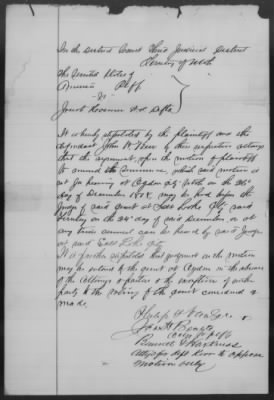 In the District Court Third Judicial District
Territory of Utah
The United States of
America Plff
vs
Jacob & al Defts
It is hereby stipulated by the plaintiff and the
defendant John W. by their respective attorneys
that the argument upon the motion of plaintiff
to amend the summons, which said motion is
set for hearing at Ogden City Utah on the
day of December 1878, may be had before the
Judge of said court at Salt Lake City said
Territory on the day of said December, or at
any time counsel can be heard by said Judge
at said Salt Lake City
It is further stipulated that judgment on the motion
may be entered by the court at Ogden in the absence
of the attorneys & parties & the exception of either
party to the ruling of the court considered as
made.
Philip T. Van Zile
John
Attys for Plff
Bennett & Harkness
Attys for deft to oppose
motion only